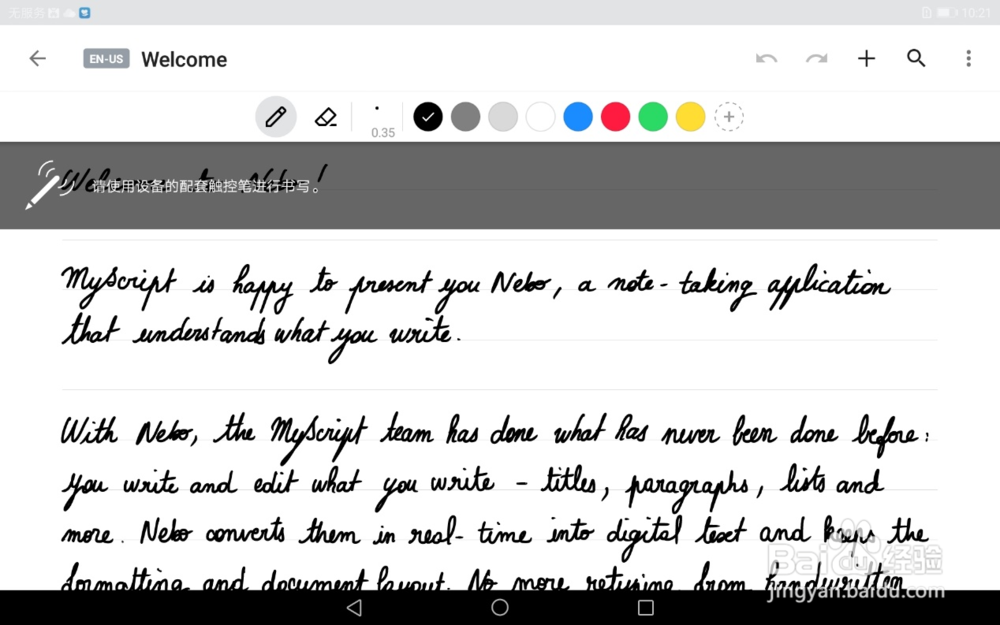 无服务 10:21
EN-US Welcome
0.35
Welcome to Nebo!
请使用设备的配套触控笔进行书写。
MyScript is happy to present you Nebo, a note-taking application
that understands what you write.
With Nebo, the MyScript team has done what has never been done before:
you write and edit what you write - titles, paragraphs, lists and
more. Nebo converts them in real-time into digital text and keeps the
formatting and document layout. No more retyping from handwritten
Baidu经验
jingyan.baidu.com